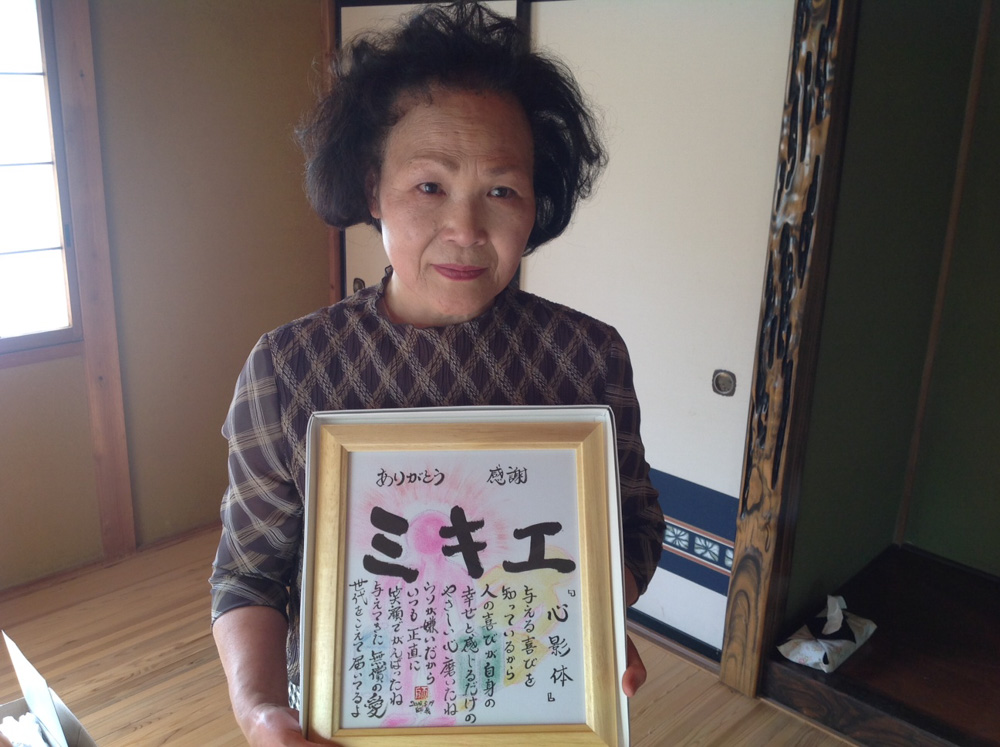 ありがとう 感謝
ミキエ
『心影体』
与える喜びを
知っているから
人の喜びが自身の
幸せと感じるだけの
やさしい心磨いたね
ウソが嫌いだから
いつも正直に
笑顔でがんばったね
与えてきた無償の愛
世代をこえて届いてるよ